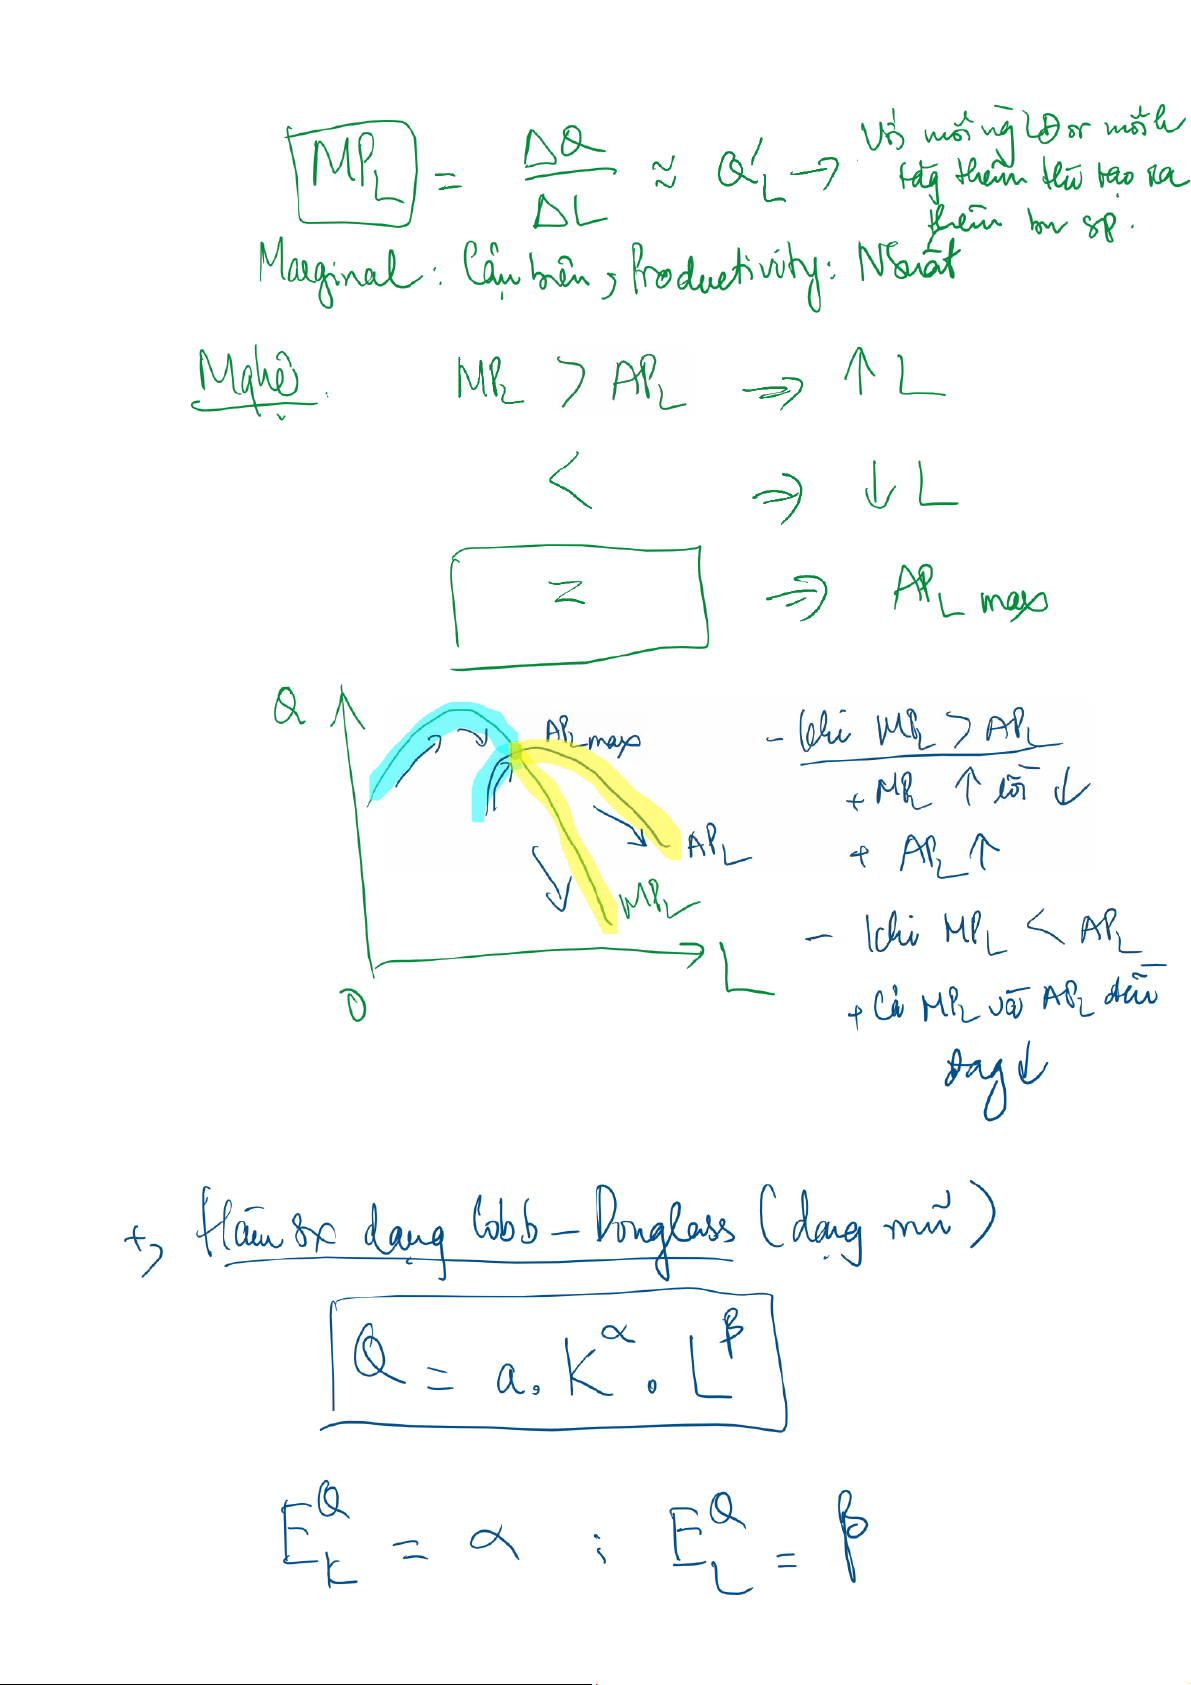 MP_L = ΔQ/ΔL ≈ Q'_L → Với mỗi ng LĐ or mỗi h
tăg thêm thì tạo ra
thêm bn sp.
Marginal: Cận biên, Productivity: NSuất
MP_L > AP_L ⇒ ↑ L
< ⇒ ↓ L
= ⇒ AP_L max
Q
AP_L max
AP_L
MP_L
L
0
- khi MP_L > AP_L
+ MP_L ↑ rồi ↓
+ AP_L ↑
- khi MP_L < AP_L
+ Cả MP_L và AP_L đều
đag ↓
+, Hàm sx dạng Cobb - Douglass (dạng mũ)
Q = a. K^α . L^β
E^Q_K = α ; E^Q_L = β